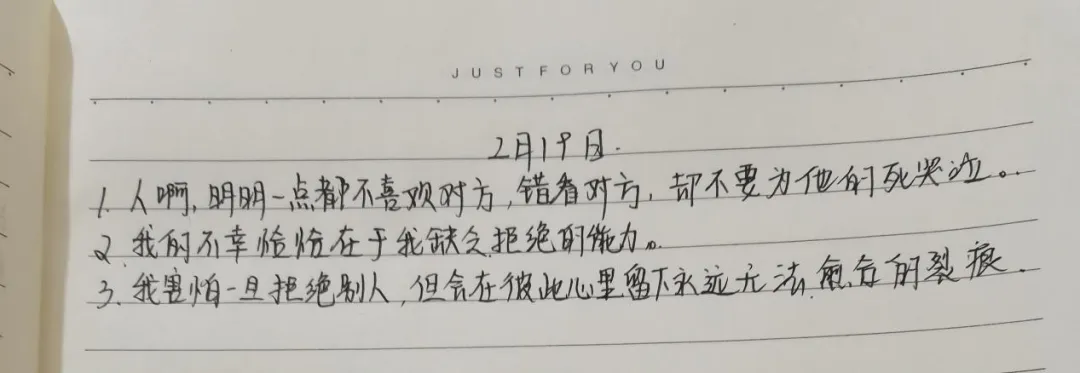 JUST FOR YOU
2月19日.
1. 人啊,明明一点都不喜欢对方,错看对方,却不要为他的死哭泣。
2. 我的不幸恰恰在于我缺乏拒绝的能力。
3. 我害怕一旦拒绝别人,但会在彼此心里留下永远无法愈合的裂痕.